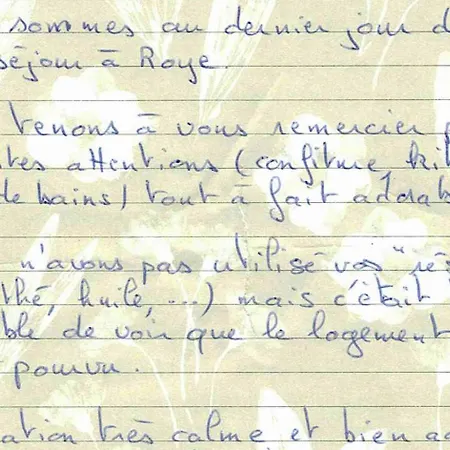 sommes au dernier jour d
séjour à Roye.
tenons à vous remercier p
tes attentions (confiture kit
de bains) tout à fait adorab
n'avons pas utilisé vos "rés
thé, huile, ...) mais c'était
ble de voir que le logement
pourvu.
ation très calme et bien ac